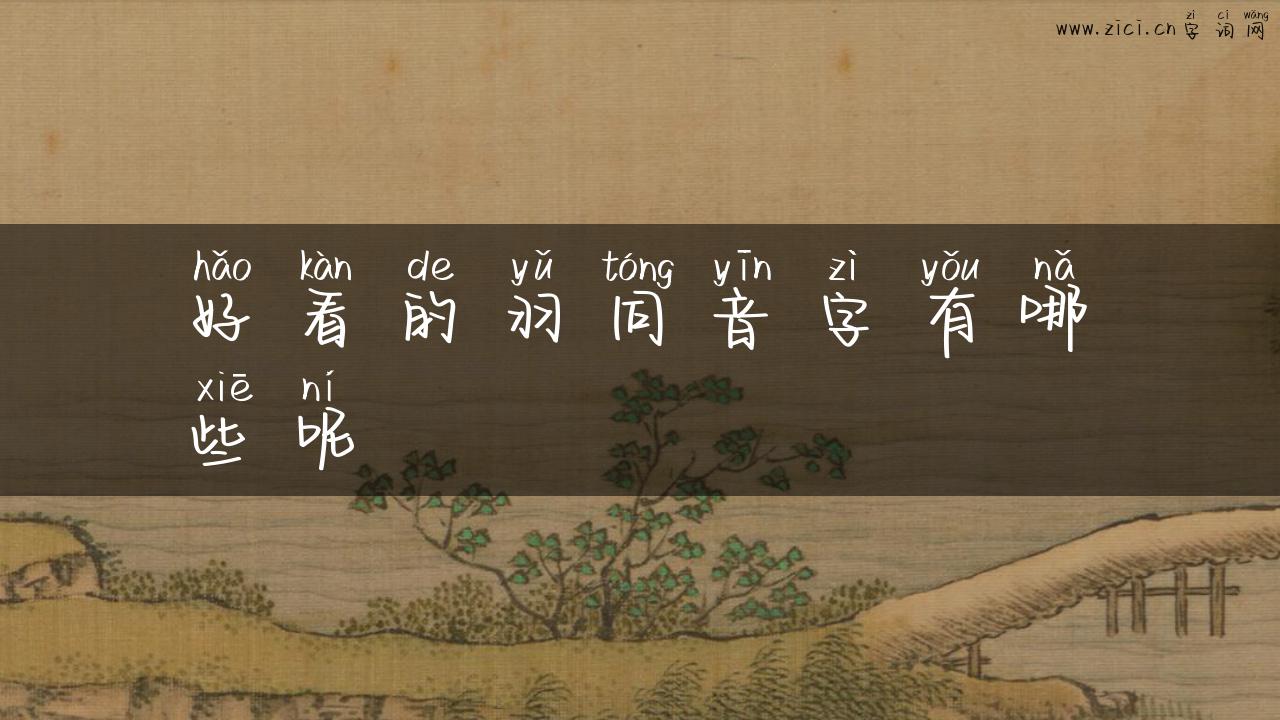 zì cí wǎng
www.zici.cn 字词网
hǎo kàn de yǔ tóng yīn zì yǒu nǎ
好看的羽同音字有哪
xiē ní
些呢